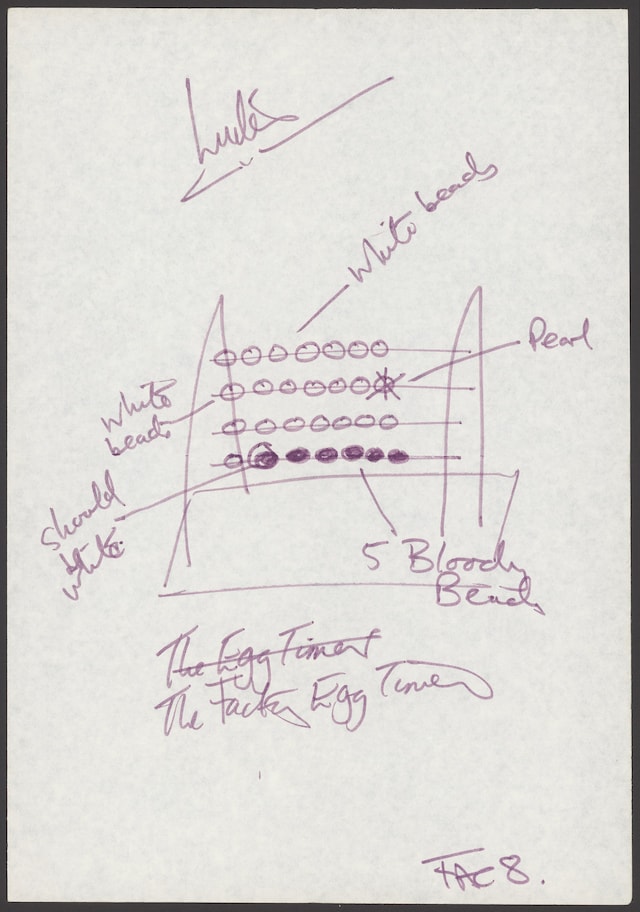 White beads
Pearl
White
beads
should
be
white
5 Bloody
Beads
The Egg Timer
The Factory Egg Timer
FAC 8.